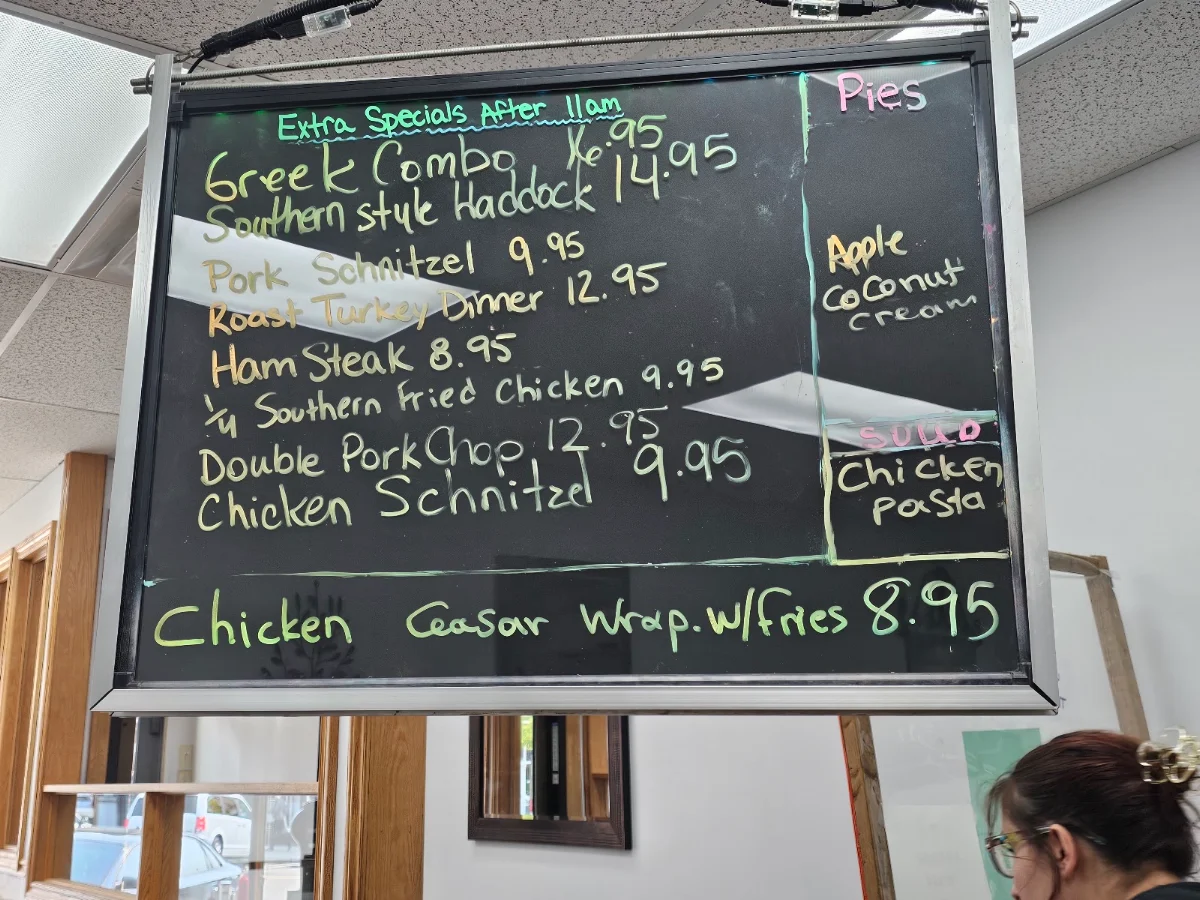 Extra Specials After 11am
Greek Combo 16.95
Southern style Haddock 14.95
Pork Schnitzel 9.95
Roast Turkey Dinner 12.95
Ham Steak 8.95
1/4 Southern Fried Chicken 9.95
Double Pork Chop 12.95
Chicken Schnitzel 9.95
Pies
Apple
Coconut
cream
SOUP
Chicken
Pasta
Chicken Ceasar Wrap. W/fries 8.95